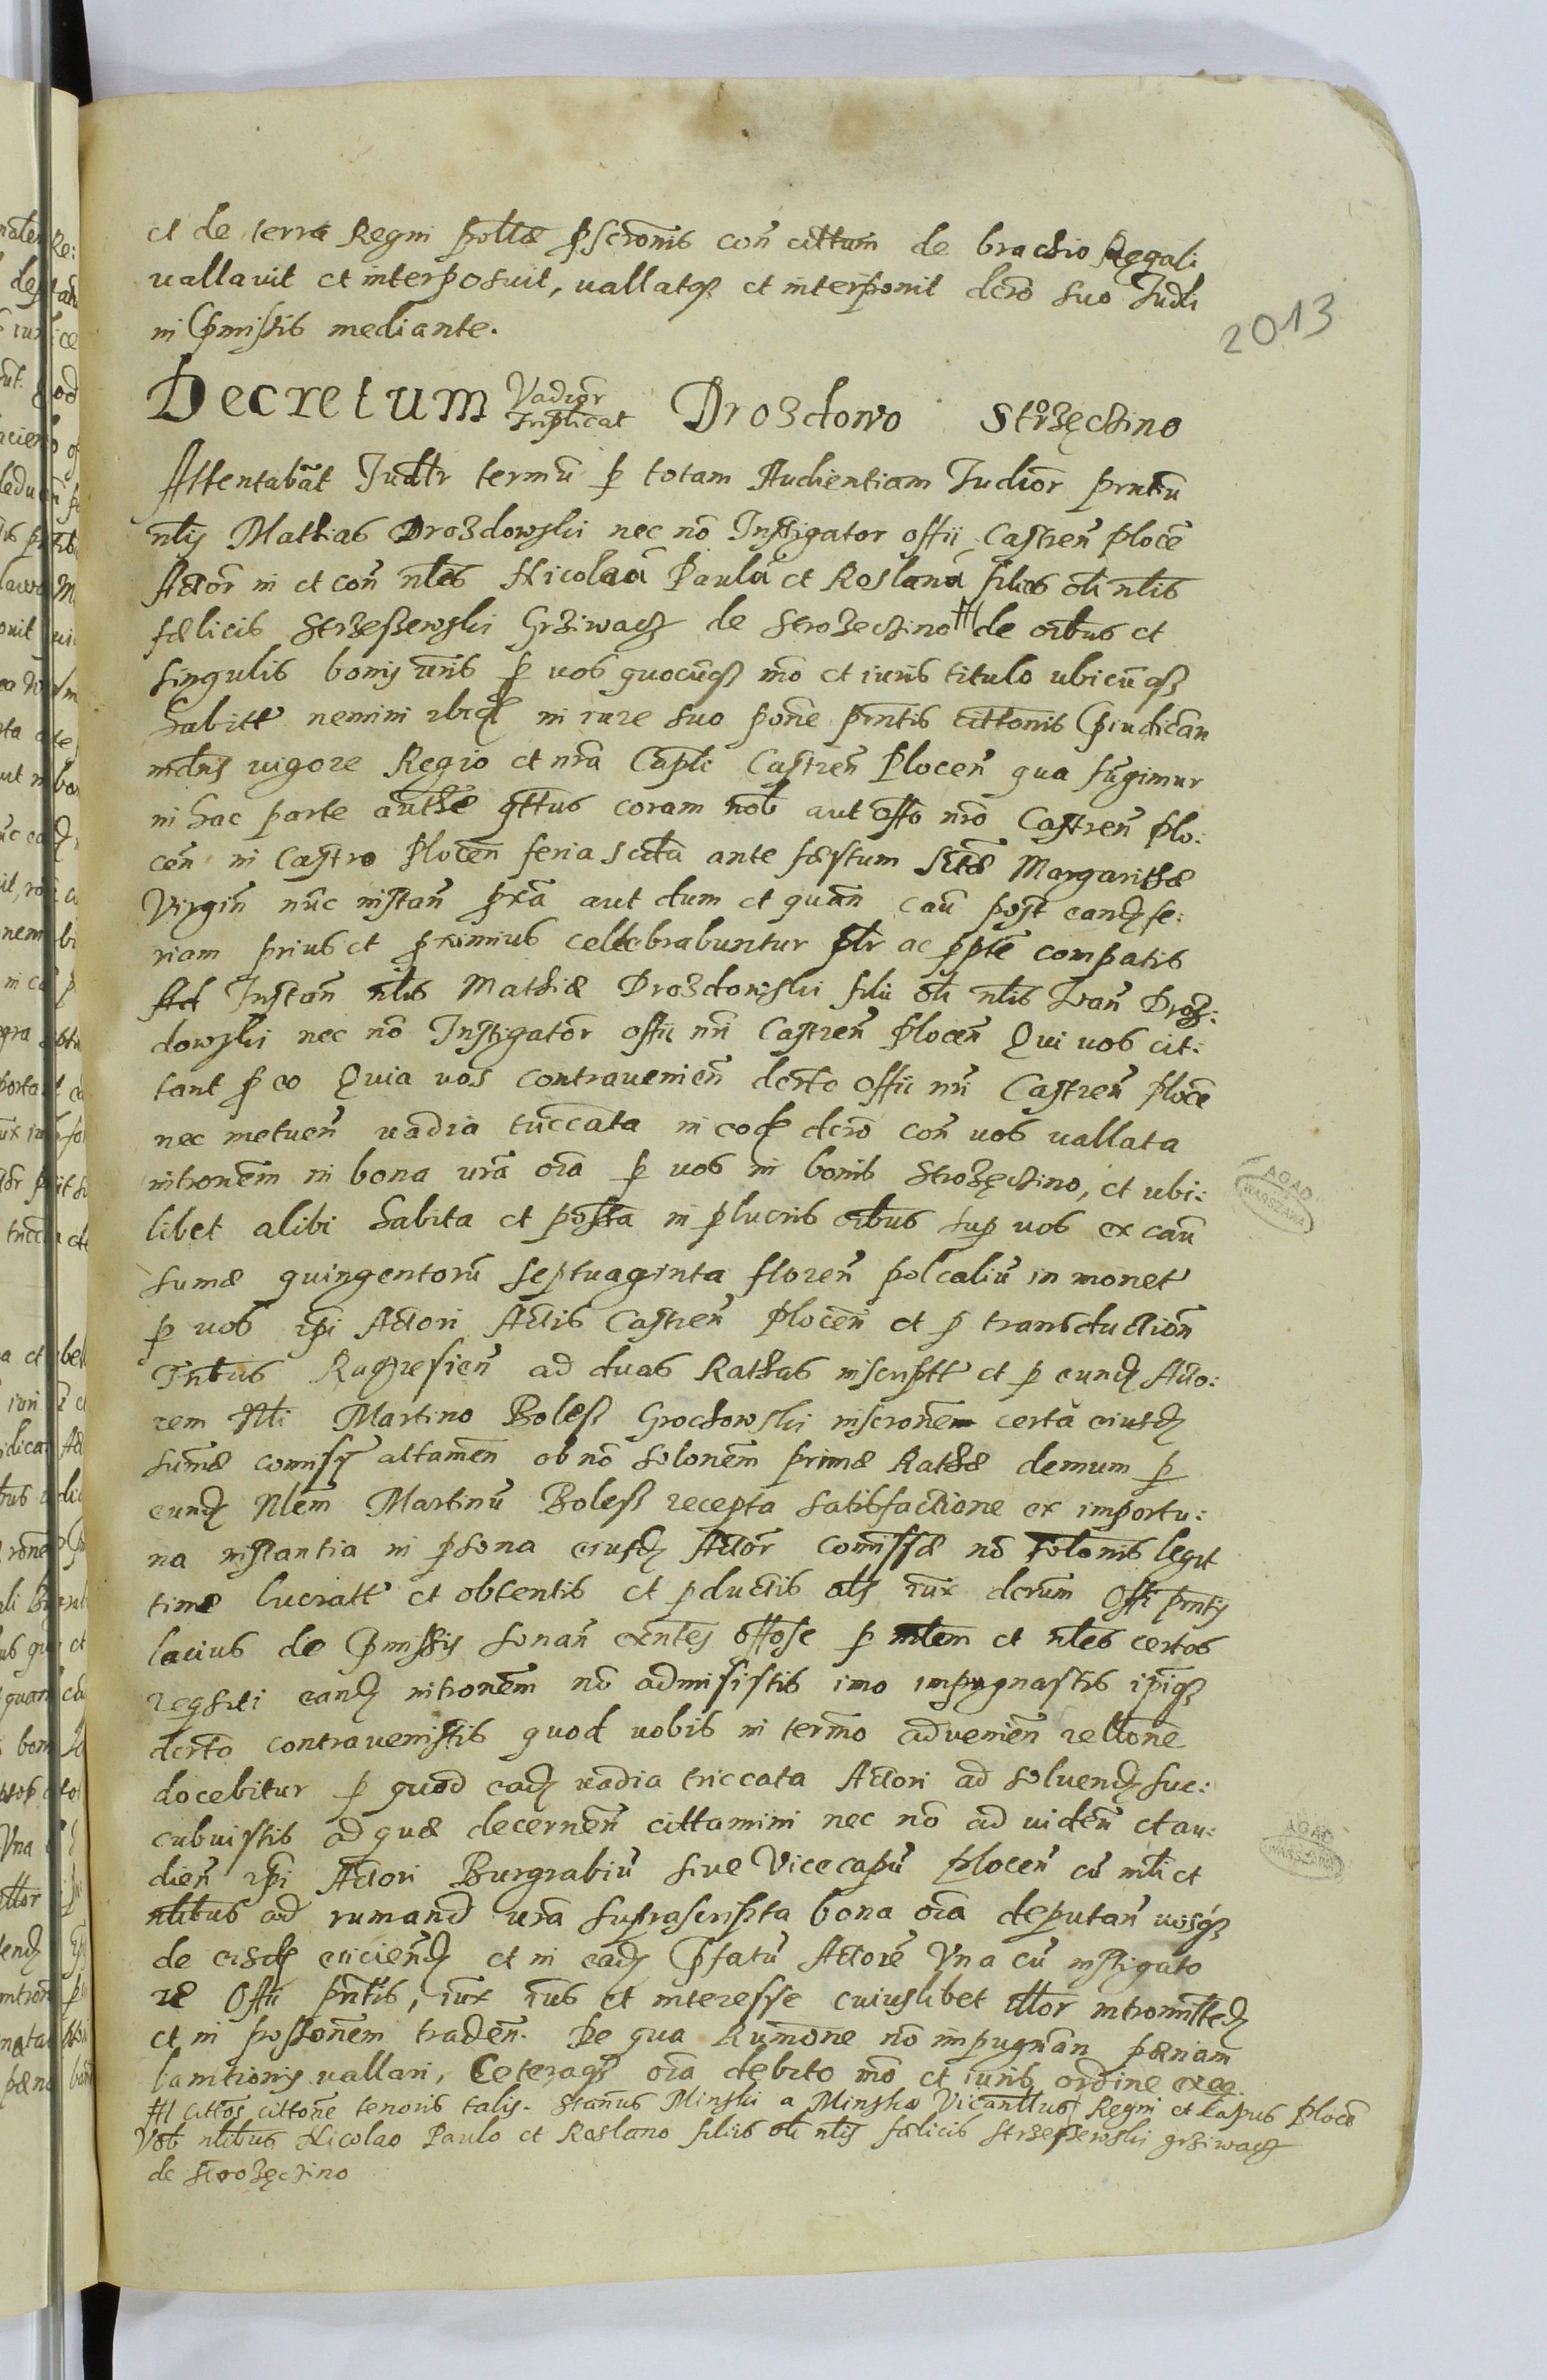 et de terra Regni polłae pscronis con cittum de brachio Regali
vallavit et interposuit, vallatqȝ et interponit dcro suo Iudli
in pmissis mediante.
2013
Decretum Vadior Triplicat Drozdowo Strzechino
Attentabat Iudlr termū p totam Audientiam Iudior prntiū
nlis Mathias Drozdowski nec nō Instigator offii Castren plocē
Actor in et con nles Nicolaū Paulū et Roslanū filios oli nlis
faelicis Strzeszewski Grziwacz de Strozechino # de oibus et
singulis bonis vris p vos quocūqȝ mō et iuris titulo ubicūqȝ
habitt nemini in iure suo pone prntis cittonis piudican
mdus vigore Regio et nra Capli Castren Plocen qua fugimur
in hac parte authae qttus coram nob aut offo nro Castren Plo:
cen in Castro Plocen feria scda ante faestum Sctae Margarithae
Virgin nūc instan pxa aut dum et quan cau post eandȝ fe:
riam prius et pximius cellebrabuntur plr ac ppte compatis
Ad Instan nlis Mathiae Drozdowski filii oli nlis Ioan Droz:
dowski nec nō Instigator offii nri Castren Plocen Qui vos cit:
tant p eo Quia vos contravenien decrto offii nri Castren Ploce
nec metuen vadia triccata in eod dcro con vos vallata
intronem in bona vra oia p vos in bonis Strozechino, et ubi:
libet alibi habita et possa in plucris oibus sup vos ex cau
sumae quingentorū septuaginta floren polcaliū in monet
p vos ipi Actori Actis Castren Plocen et p transduction
Intus ad duas Rathas inscriptt et p eundȝ Acto:
rem Nli Martino Bolesz Grochowski inscronem certa eiusdȝ
sumae attamen ob nō solonem primae Rathae demum p
eundȝ Nlem Martinū Bolesz recepta satisfactione ex importu:
na instantia in psona eiusdȝ Actor comissae nō solonis legit
time lucratt et obtentis et pductis als iux dcrum Offi prntis
lacius de pmissis sonan exntes offose p mlem et nles certos
reqsiti eandȝ intronem nō admisistis imo impugnastis ipiqȝ
dcrto contravenistis quod vobis in termo advenien rellone
docebitur p quod eadȝ vadia triccata Actori ad solvendȝ suc:
cubuistis ad quae decernen cittamini nec nō ad viden et au:
dien ipi Actori Burgrabiū sive Vicecapū Plocen cū mli et
nlibus ad rumand vra suprascripta bona oia deputan vosqȝ
de eisdȝ eiiciendȝ et in eadȝ pfatū Actore Vna cū instigato
re Offii pntis, iux ius et interesse cuiuslibet illor intromittedȝ
et in possonem traden. De qua Rumone nō impugnan paenam
bannitionis vallari, Ceteraqȝ oia debito mō et iuris ordine exeq.
# cittos cittone tenoris talis. Stanus Minski a Minsko Vicanllus Regni et Capus Plocē
Vob nlibus Nicolao Paulo et Roslano filiis oli nlis faelicis Strzeszewski grziwacz
de Strozechino
AGAD
WARSZAWA
AGAD
WARSZAWA